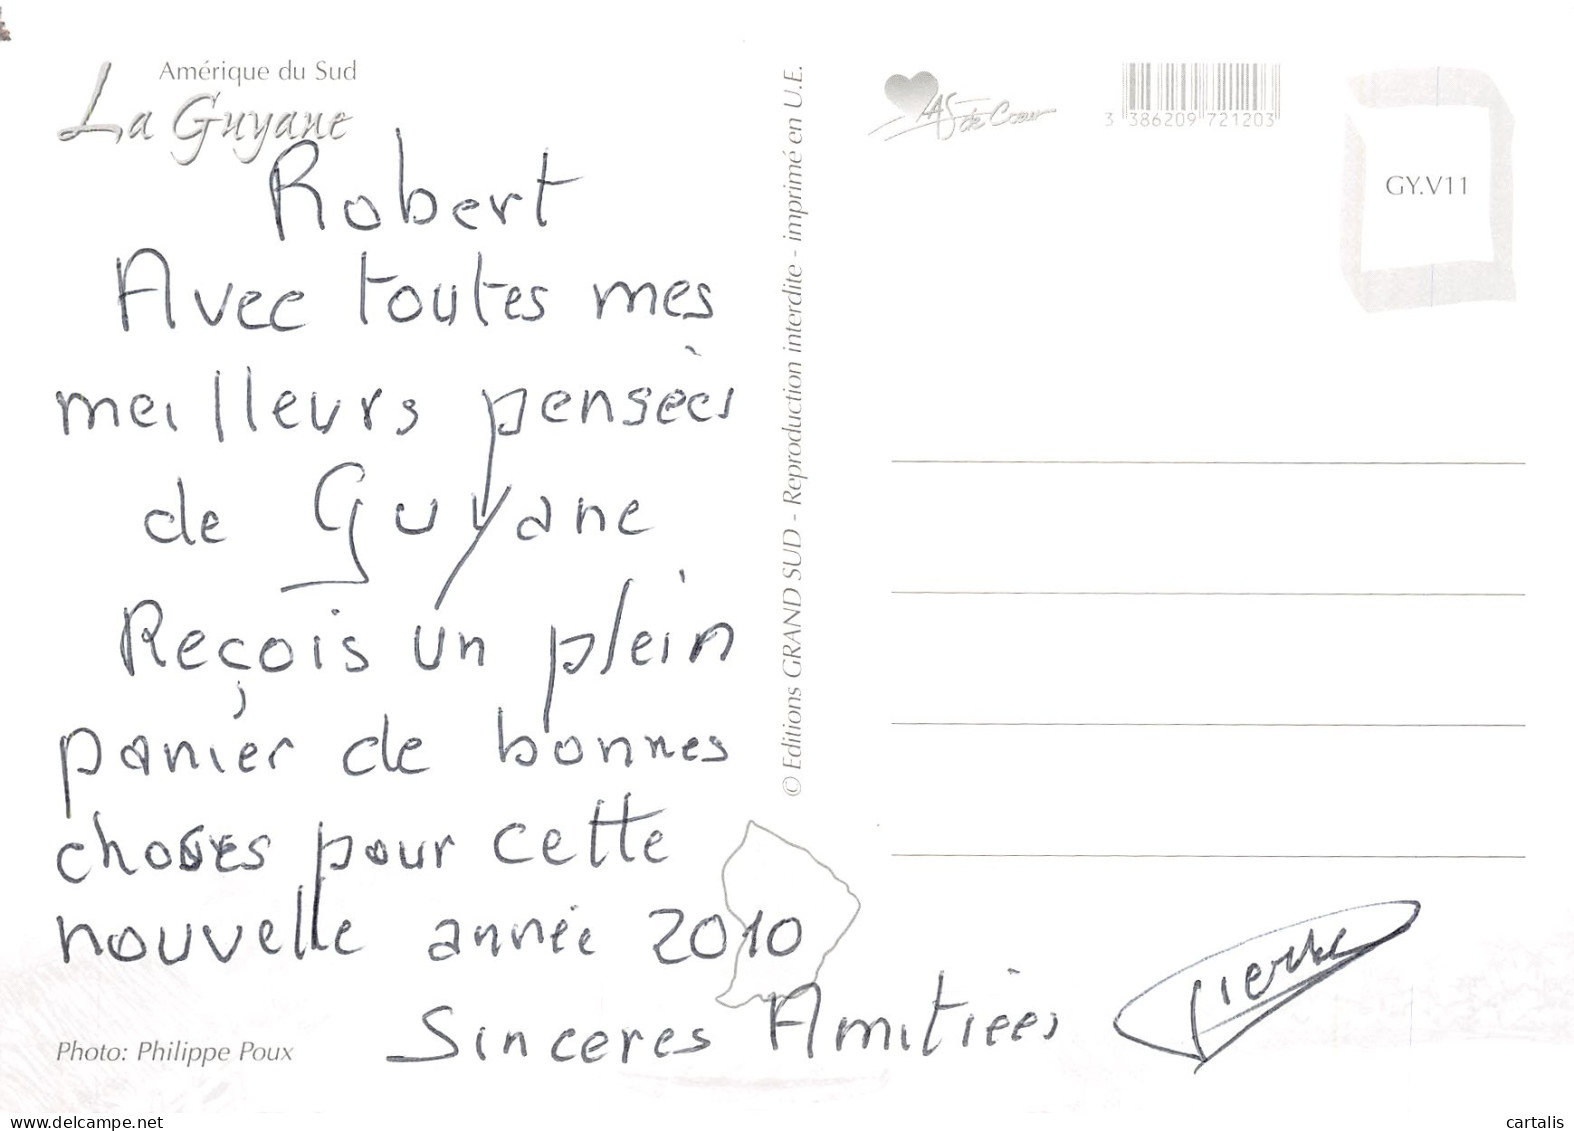 Amérique du Sud
La Guyane
Robert
Avec toutes mes
meilleurs pensèes
de Guyane
Reçois un plein
panier de bonnes
choses pour cette
nouvelle année 2010
Sinceres Amitiées
Pierre
Photo: Philippe Poux
© Editions GRAND SUD - Reproduction interdite - imprimé en U.E.
AS de Cœur
3 386209 721203
GY.V11
delcampe.net
cartalis